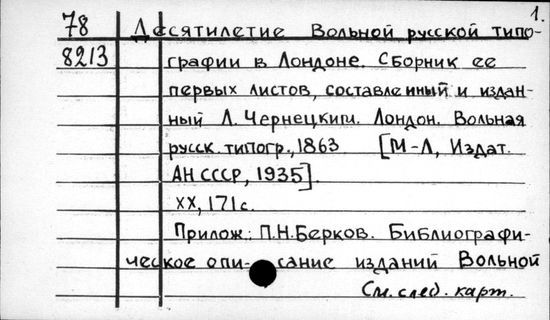 1.
78 Десятилетие Вольной русской типо-
8213 графии в Лондоне. Сборник ее
первых листов, составленный и издан-
ный Л. Чернецким. Лондон. Вольная
русск. типогр., 1863 [М-Л, Издат.
АН СССР, 1935].
XX, 171 с.
Прилож.: П.Н. Берков. Библиографи-
ческое опи- сание изданий Вольной
См. след. карт.